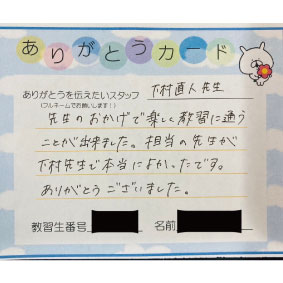 ありがとうカード
ありがとうを伝えたいスタッフ 下村直人先生
(フルネームでお願いします！)
先生のおかげで楽しく教習に通う
ことが出来ました。担当の先生が
下村先生で本当によかったです。
ありがとうございました。
教習生番号 名前